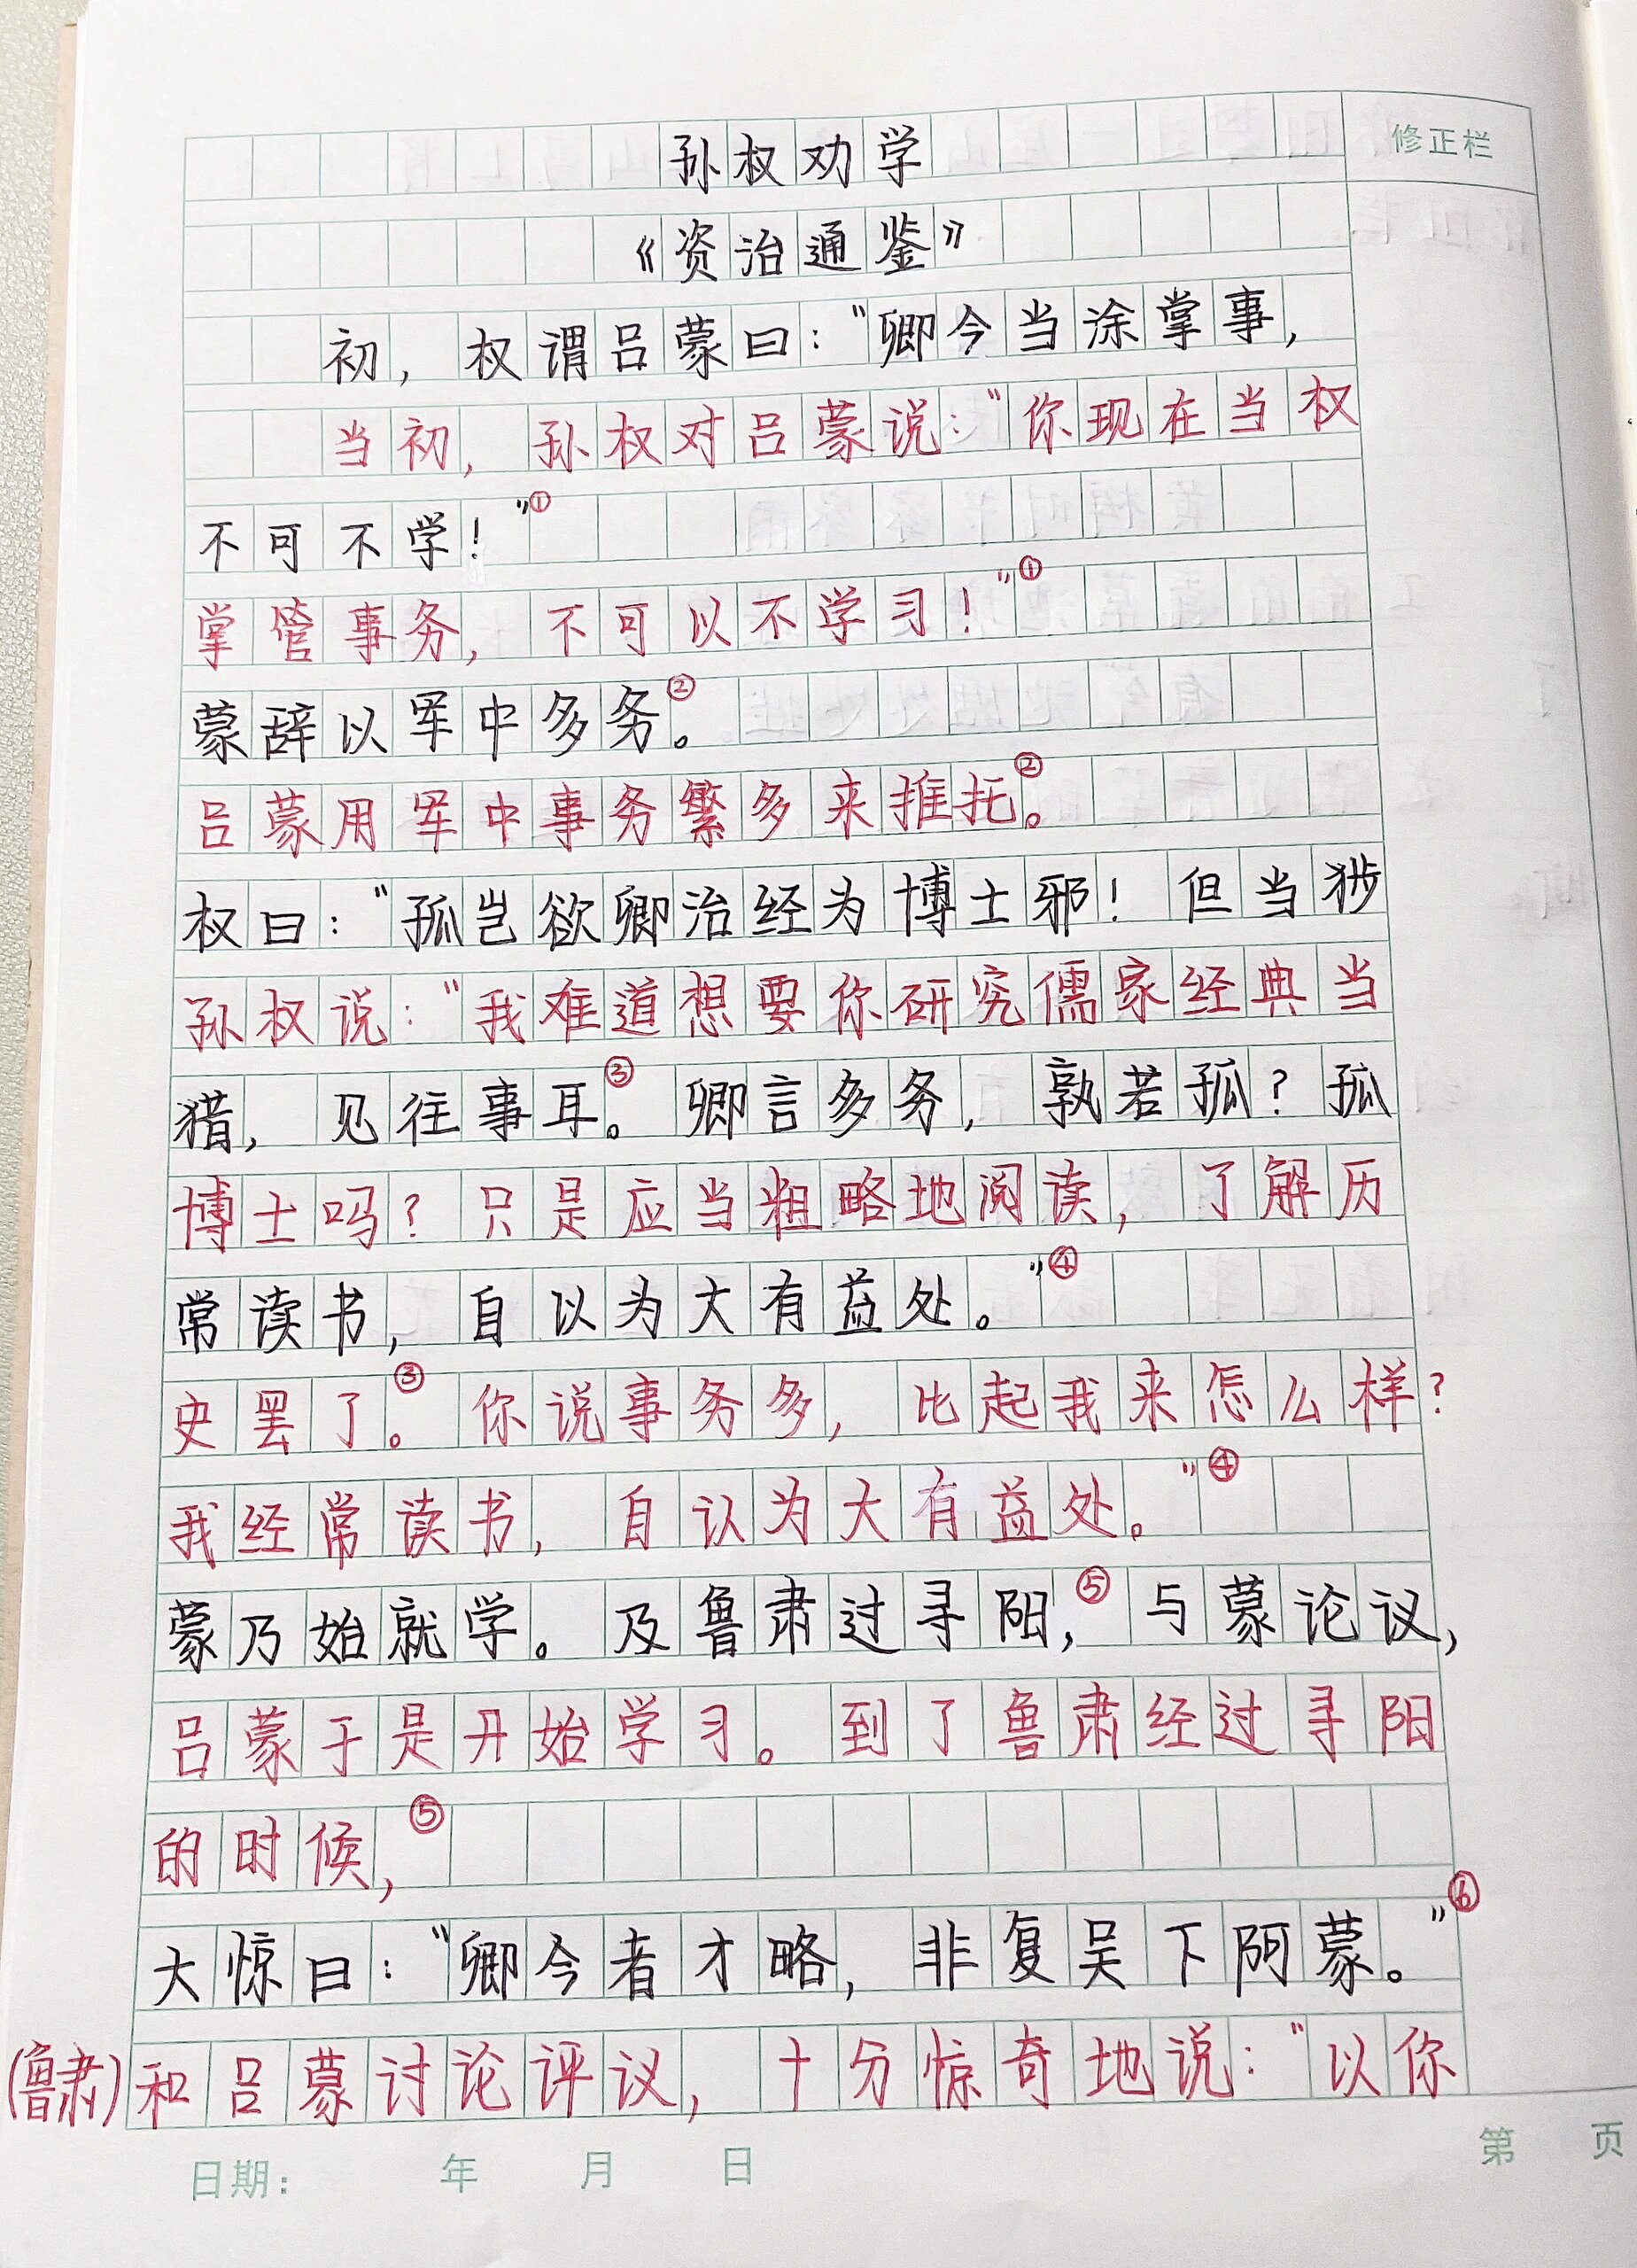 孙权劝学
修正栏
《资治通鉴》
初，权谓吕蒙曰：“卿今当涂掌事，
当初，孙权对吕蒙说：“你现在当权
不可不学！”①
掌管事务，不可以不学习！”①
蒙辞以军中多务。②
吕蒙用军中事务繁多来推托。②
权曰：“孤岂欲卿治经为博士邪！但当涉
孙权说：“我难道想要你研究儒家经典当
猎，见往事耳。③卿言多务，孰若孤？孤
博士吗？只是应当粗略地阅读，了解历
常读书，自以为大有益处。”④
史罢了。③你说事务多，比起我来怎么样？
我经常读书，自认为大有益处。”④
蒙乃始就学。及鲁肃过寻阳，⑤与蒙论议，
吕蒙于是开始学习。到了鲁肃经过寻阳
的时候，⑤
大惊曰：“卿今者才略，非复吴下阿蒙。”⑥
（鲁肃）和吕蒙讨论评议，十分惊奇地说：“以你
日期： 年 月 日
第 页